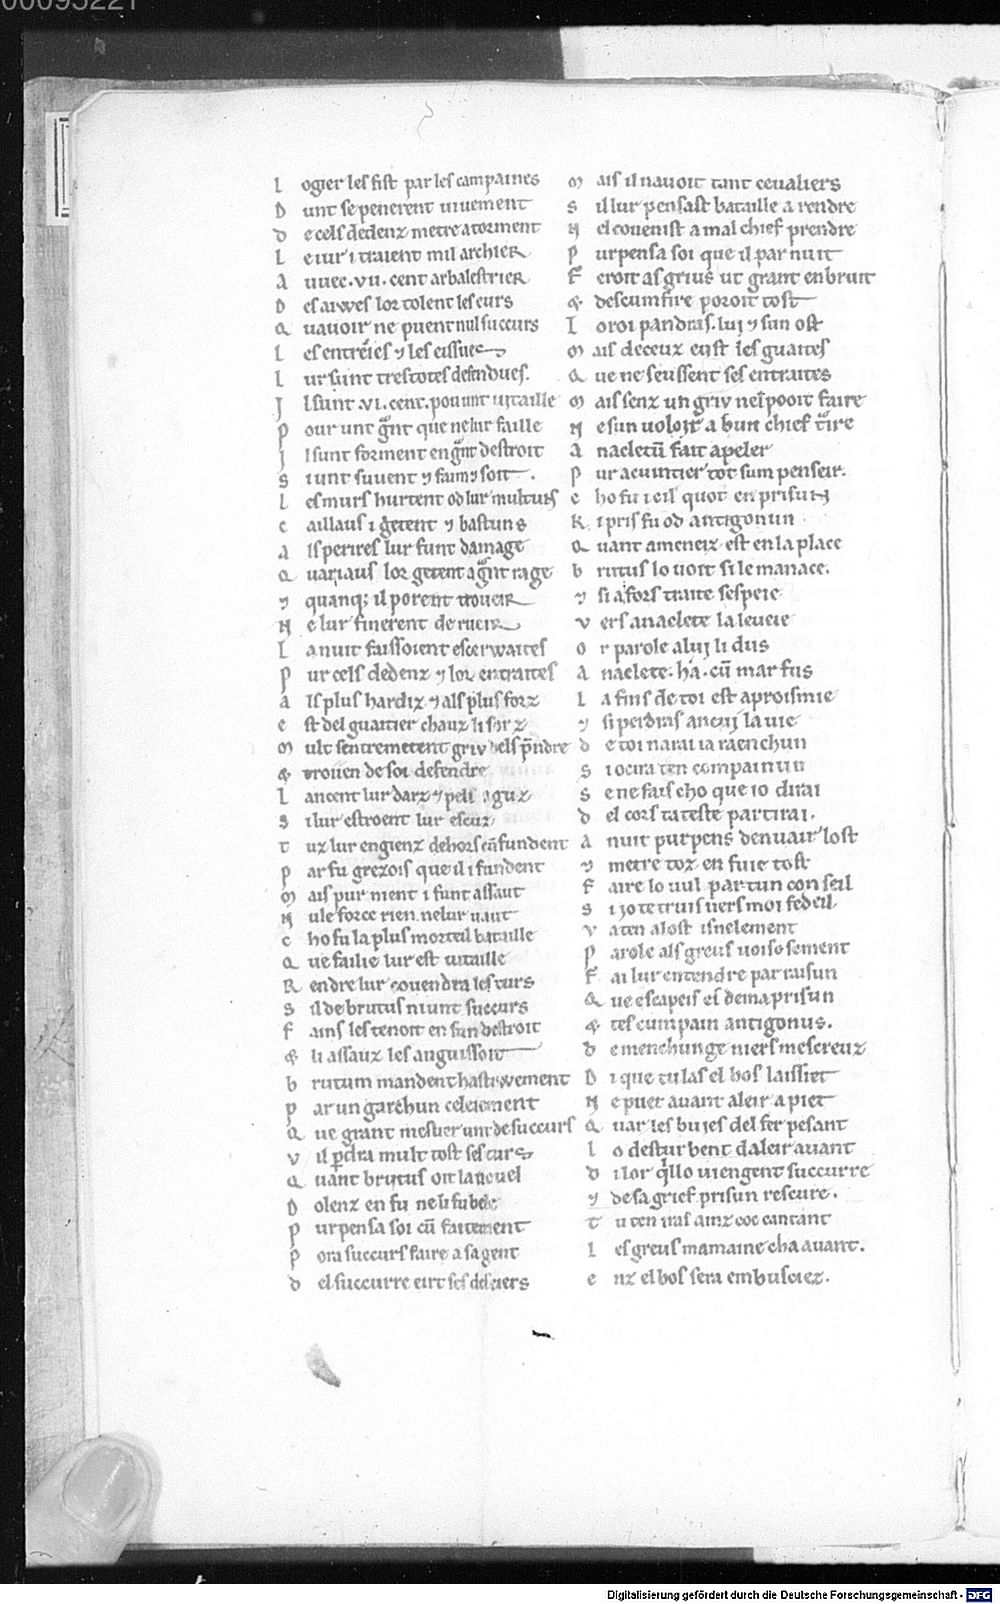 00095221
L ogier les fist par les campaines
D unt se penerent uiuement
d e cels dedenz metre a torment
L e iur i traient mil archier
A uuec .vii. cent arbalestrier
D es arwes lor tolent les eurs
Q uauoir ne puent nul succurs
L es entrees ⁊ les eissues
l ur sunt trestotes defendues.
J l sunt .vi. cent. pou unt uitaille
P our unt gͣnt que ne lur faille
J l sunt forment en gͣnt destroit
S i unt suuent ⁊ faim ⁊ soit .
L es murs hurtent od lur multuns
c aillaus i getent ⁊ bastuns
a ls perires lur funt damage
Q uariaus lor getent a gͣnt rage
⁊ quanqꝫ il porent troueir
N e lur finerent de rueir
L a nuit faissoient escerwaites
P ur cels dedenz ⁊ lor entraites
a ls plus hardiz ⁊ als plus forz
e st del guaitier chauz li sorz
M ult sentremetent griu dels p̄ndre
⁊ trouen de soi defendre
L ancent lur darz ⁊ pels aguz
S i lur estroent lur escuz
T uz lur engienz dehors cūfundent
P ar fu grezois que il i fundent
M ais pur nient i funt assaut
N ule force rien ne lur uaut
c ho fu la plus morteil bataille
Q ue failie lur est uitaille
R endre lur couendra les turs
S il de brutus niunt succurs
F ains les tenoit en sun destroit
⁊ li assauz les anguissoit
b rutum mandent hastiwement
P ar un garchun celeiement
Q ue grant mestier unt de succurs
V il p̄dra mult tost ses turs
Q uant brutus oit la nouel
D olenz en fu ne li fu bele
P urpensa soi cū faitement
P ora succurs faire a sa gent
d el succurre eirt ses desiers
M ais il nauoit tant ceualiers
S il lur pensast bataille a rendre
N el couenist a mal chief prendre
P urpensa soi que il par nuit
F eroit as grius ut grant enbruit
⁊ descumfire poroit tost
L o roi pandras. lui ⁊ sun ost
M ais deceuz eust les guaites
Q ue ne seussent ses entraites
M ais senz un griu nel pooit faire
N e sun uoloir a bun chief tͣire
a nacletū fait apeler
P ur acuintier tot sum penseir.
c ho fu icil quot en prisun
K i pris fu od antigonun
Q uant ameneiz est en la place
b rutus lo uoit si le manace.
⁊ si a fors traite sespeie
V ers anaclete la leueie
O r parole a lui li dus
A naclete. ha. cū mar fus
L a fins de toi est aproismie
⁊ si perdras ancui la uie
d e toi narai ia raenchun
S i ocira ten compainun
S e ne fais cho que io dirai
d el cors ta teste partirai.
A nuit purpens denuair lost
⁊ metre toz en fuie tost
F aire lo uul par tun conseil
S i io te truis uers moi fedeil
V a ten a lost isnelement
P arole als greus uoisosement
F ai lur entendre par raisun
Q ue escapeis es de ma prisun
⁊ tes cumpain antigonus.
d e menchunge niers mescreuz
D i que tu las el bos laissiet
N e puet auant aleir a piet
Q uar les buies del fer pesant
l o desturbent daleir auant
d i lor qͥl lo uiengent succurre
⁊ de sa grief prisun rescure.
T u ten iras ainz coc cantant
L es greus mamaine cha auant.
e nz el bos sera embusciez.
Digitalisierung gefördert durch die Deutsche Forschungsgemeinschaft - DFG